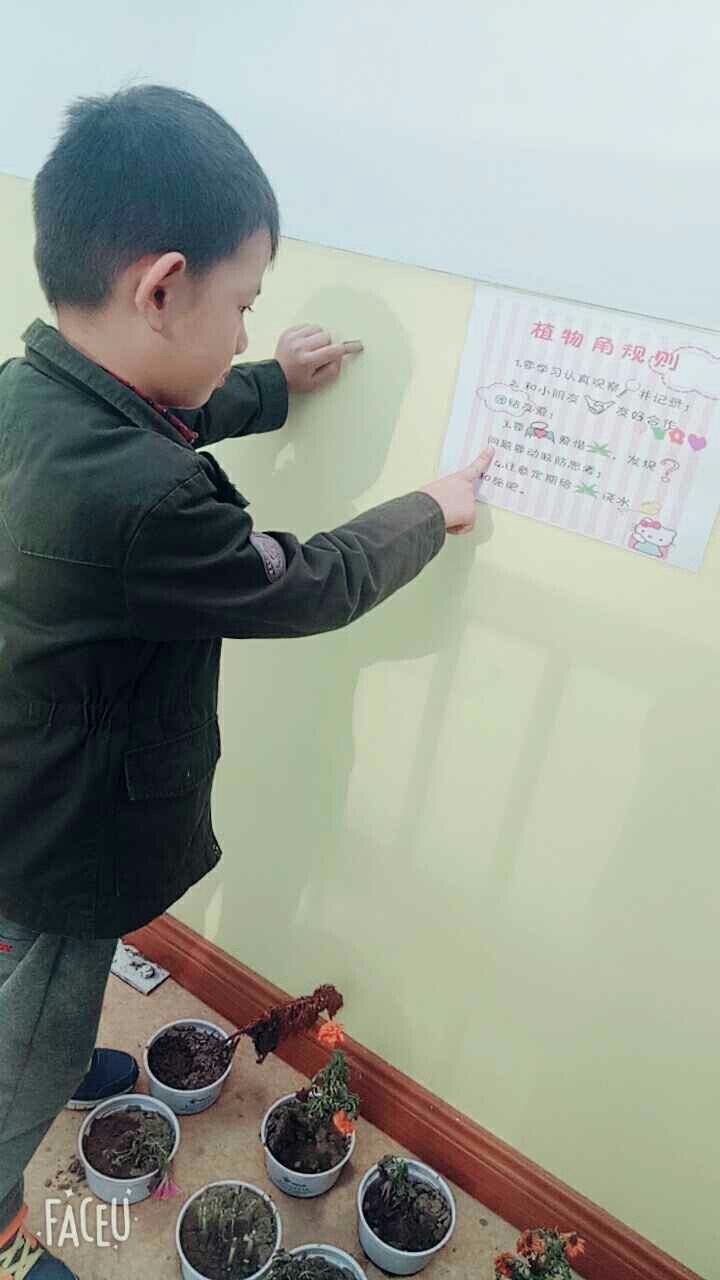 植物角规则
1.要学习认真观察并记录;
2.和小朋友友好合作
团结友爱;
3.要爱惜,发现
问题要动脑筋思考;
4.注意定期给浇水
和施肥。
FACEU